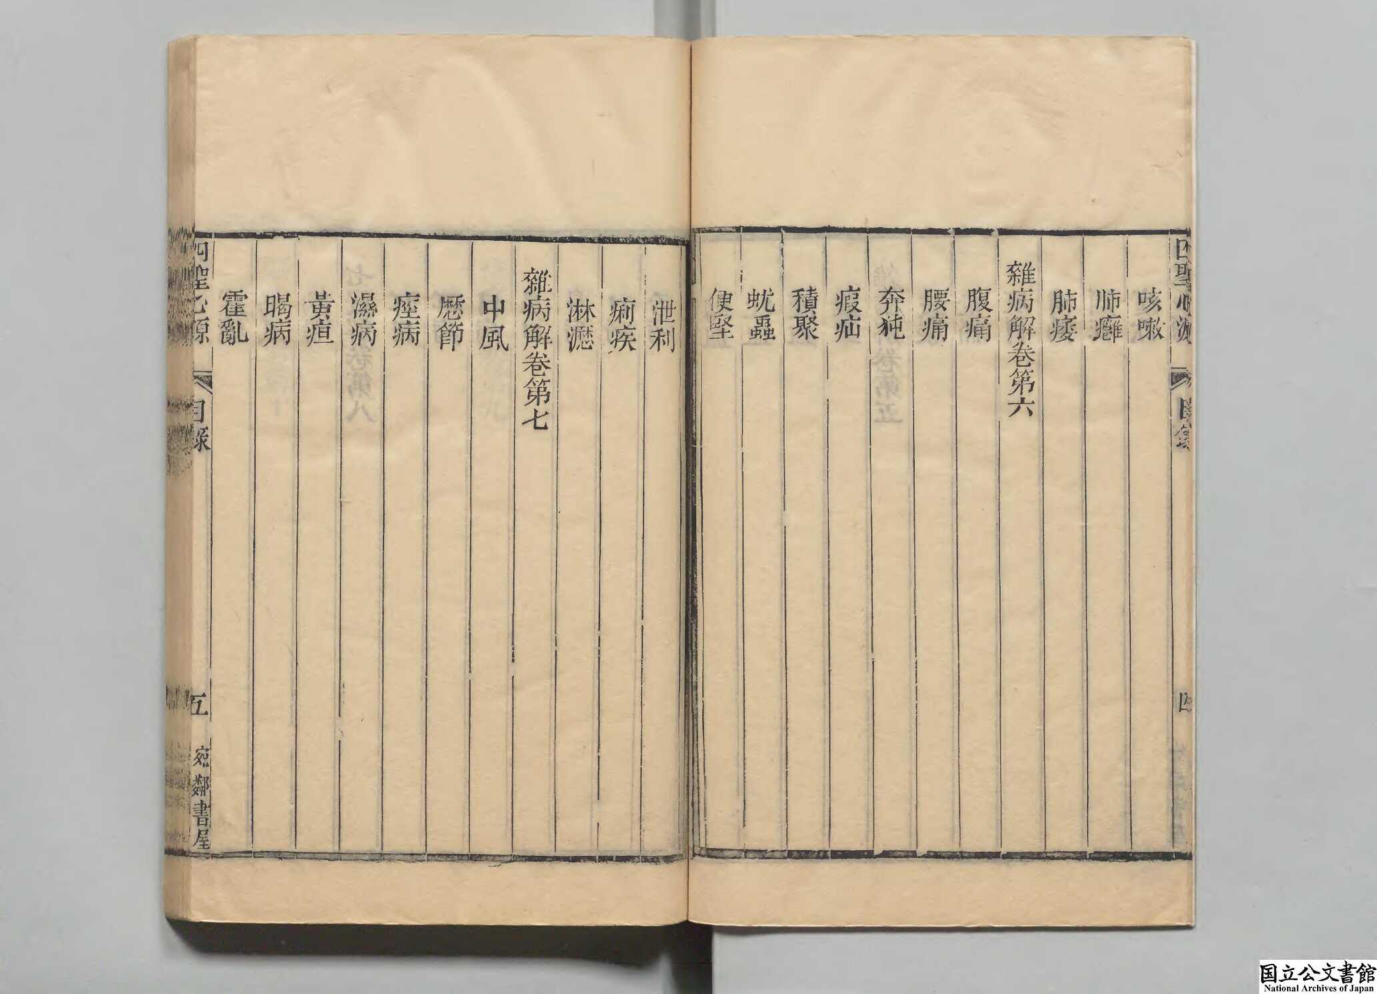 四聖心源
目錄
四
咳嗽
肺癰
肺痿
雜病解卷第六
腹痛
腰痛
奔㹠
瘕疝
積聚
蚘蟲
便堅
泄利
痢疾
淋瀝
雜病解卷第七
中風
歷節
痙病
濕病
黃疸
暍病
霍亂
四聖心源
目錄
五
宛鄰書屋
国立公文書館
National Archives of Japan